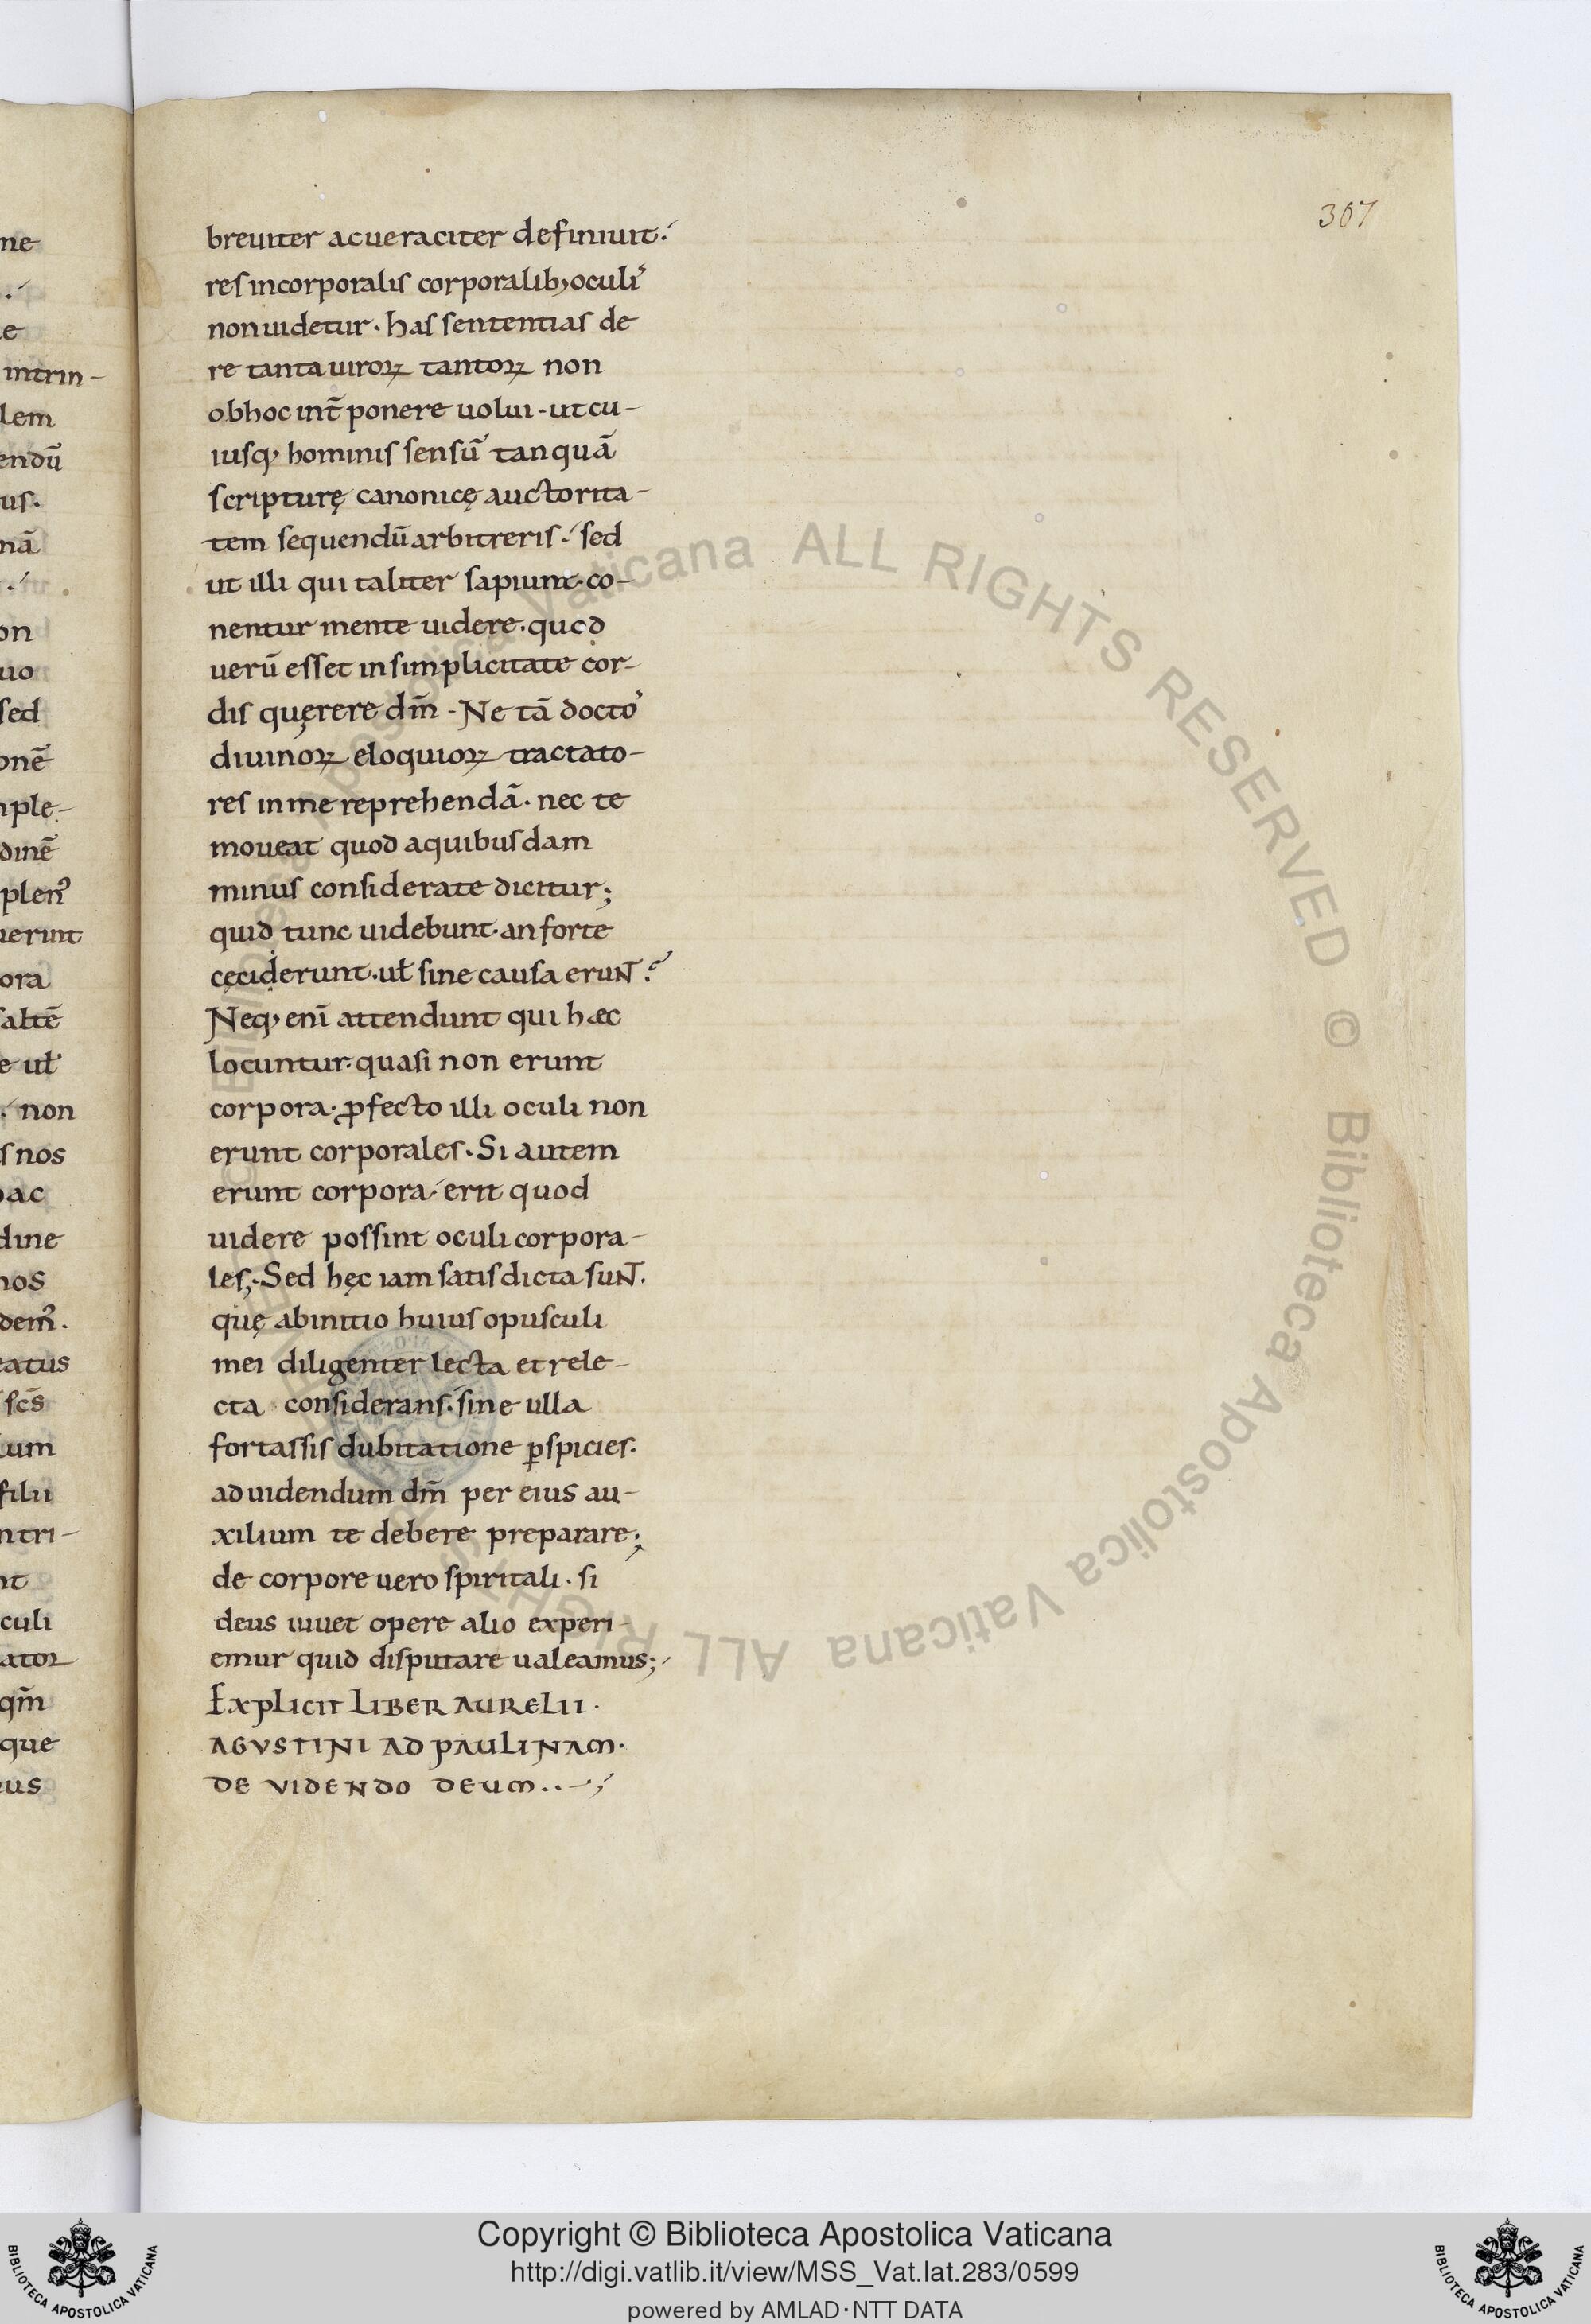 307
breuiter ac ueraciter definiuit.
res incorporalis corporalib; oculiˀ
non uidetur. has sententias de
re tanta uiroꝝ tantoꝝ non
ob hoc int̄ponere uolui. ut cu-
iusq; hominis sensū tanquā
scripturę canonicę auctorita-
tem sequendū arbitreris. sed
ut illi qui taliter sapiunt. co-
nentur mente uidere. quod
uerū esset in simplicitate cor-
dis quęrere dm̄. Ne tā doctoˀ
diuinoꝝ eloquioꝝ tractato-
res in me reprehendā. nec te
moueat quod a quibusdam
minus considerate dicitur;
quid tunc uidebunt. an forte
cęci derunt. ul̄ sine causa erunt?
Neq; enī attendunt qui hæc
locuntur. quasi non erunt
corpora. ꝓfecto illi oculi non
erunt corporales. Si autem
erunt corpora. erit quod
uidere possint oculi corpora-
les; Sed hęc iam satis dicta sunt.
quę ab initio huius opusculi
mei diligenter lecta et rele-
cta considerans. sine ulla
fortassis dubitatione ꝑspicies.
ad uidendum dm̄ per eius au-
xilium te debere preparare;
de corpore uero spiritali. si
deus iuuet opere alio experi-
emur quid disputare ualeamus;
EXPLICIT LIBER AURELII.
AGVSTINI AD PAULINAM.
DE VIDENDO DEUM..-;
ne
intrin-
lem
endū
us.
nā
on
uo
sed
onē
ple-
dinē
plenˀ
uerint
ora
saltē
e ul̄
non
s nos
ac
dine
nos
demˀ.
eatus
scs̄
um
filii
ntri-
nt
culi
ator
qm̄
que
us
© Biblioteca Apostolica Vaticana ALL RIGHTS RESERVED © Biblioteca Apostolica Vaticana ALL RIGHTS
BIBLIOTECA APOSTOLICA VATICANA
Copyright © Biblioteca Apostolica Vaticana
http://digi.vatlib.it/view/MSS_Vat.lat.283/0599
powered by AMLAD·NTT DATA
BIBLIOTECA APOSTOLICA VATICANA